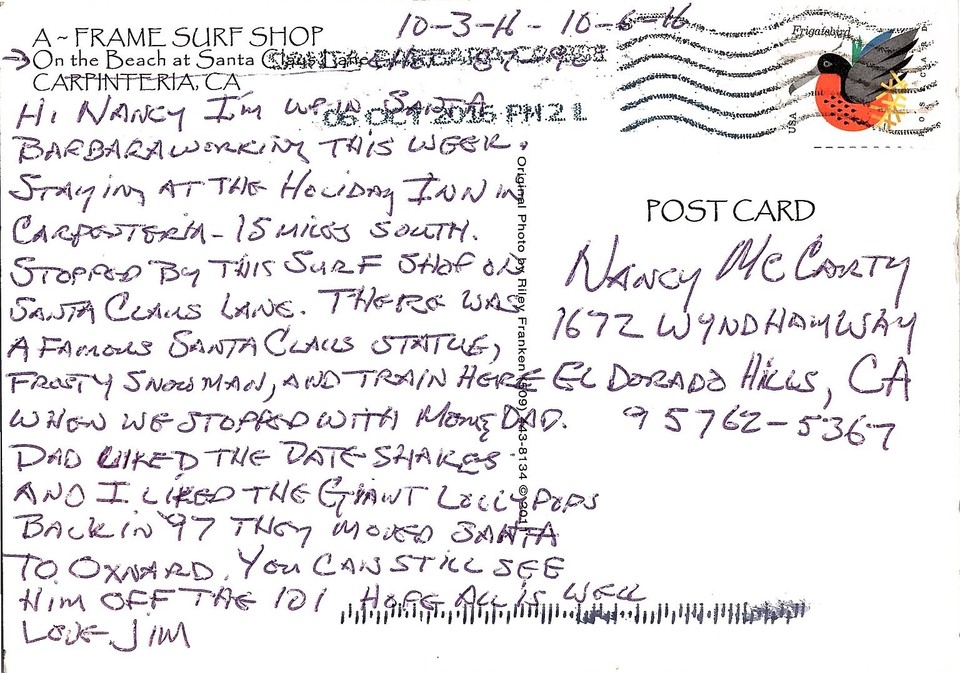 10-3-16 - 10-6-16
A ~ FRAME SURF SHOP
On the Beach at Santa Claus Lane
CARPINTERIA, CA
06 OCT 2016 PM 2 L
Frigatebird
USA
HI NANCY I'M UP IN SANTA
BARBARA WORKING THIS WEEK.
STAYING AT THE HOLIDAY INN IN
CARPENTERIA - 15 MILES SOUTH.
STOPPED BY THIS SURF SHOP ON
SANTA CLAUS LANE. THERE WAS
A FAMOUS SANTA CLAUS STATUE,
FROSTY SNOWMAN, AND TRAIN HERE
WHEN WE STOPPED WITH MOM & DAD.
DAD LIKED THE DATE SHAKES
AND I LIKED THE GIANT LOLLYPOPS
BACK IN '97 THEY MOVED SANTA
TO OXNARD. YOU CAN STILL SEE
HIM OFF THE 101 HOPE ALL IS WELL
LOVE, JIM
Original Photo by Riley Franken 943-8134 ©
POST CARD
NANCY MCCARTY
1672 WYNDHAM WAY
EL DORADO HILLS, CA
95762-5367